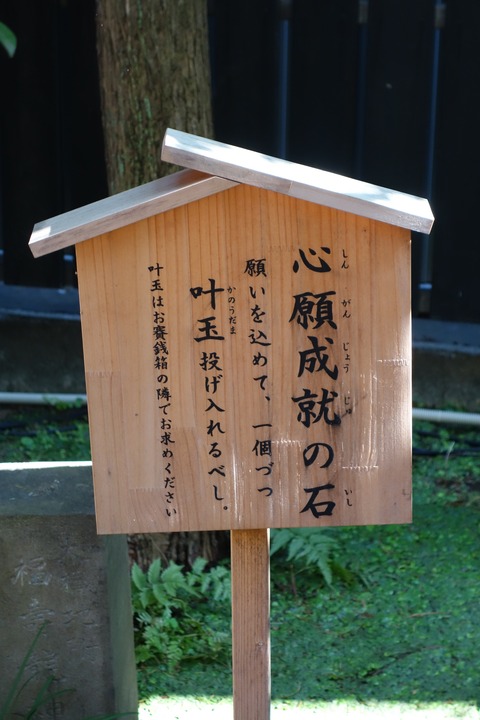 心願成就の石
しんがんじょうじゅ いし
願いを込めて、一個づつ
叶玉投げ入れるべし。
かのうだま
叶玉はお賽銭箱の隣でお求めください